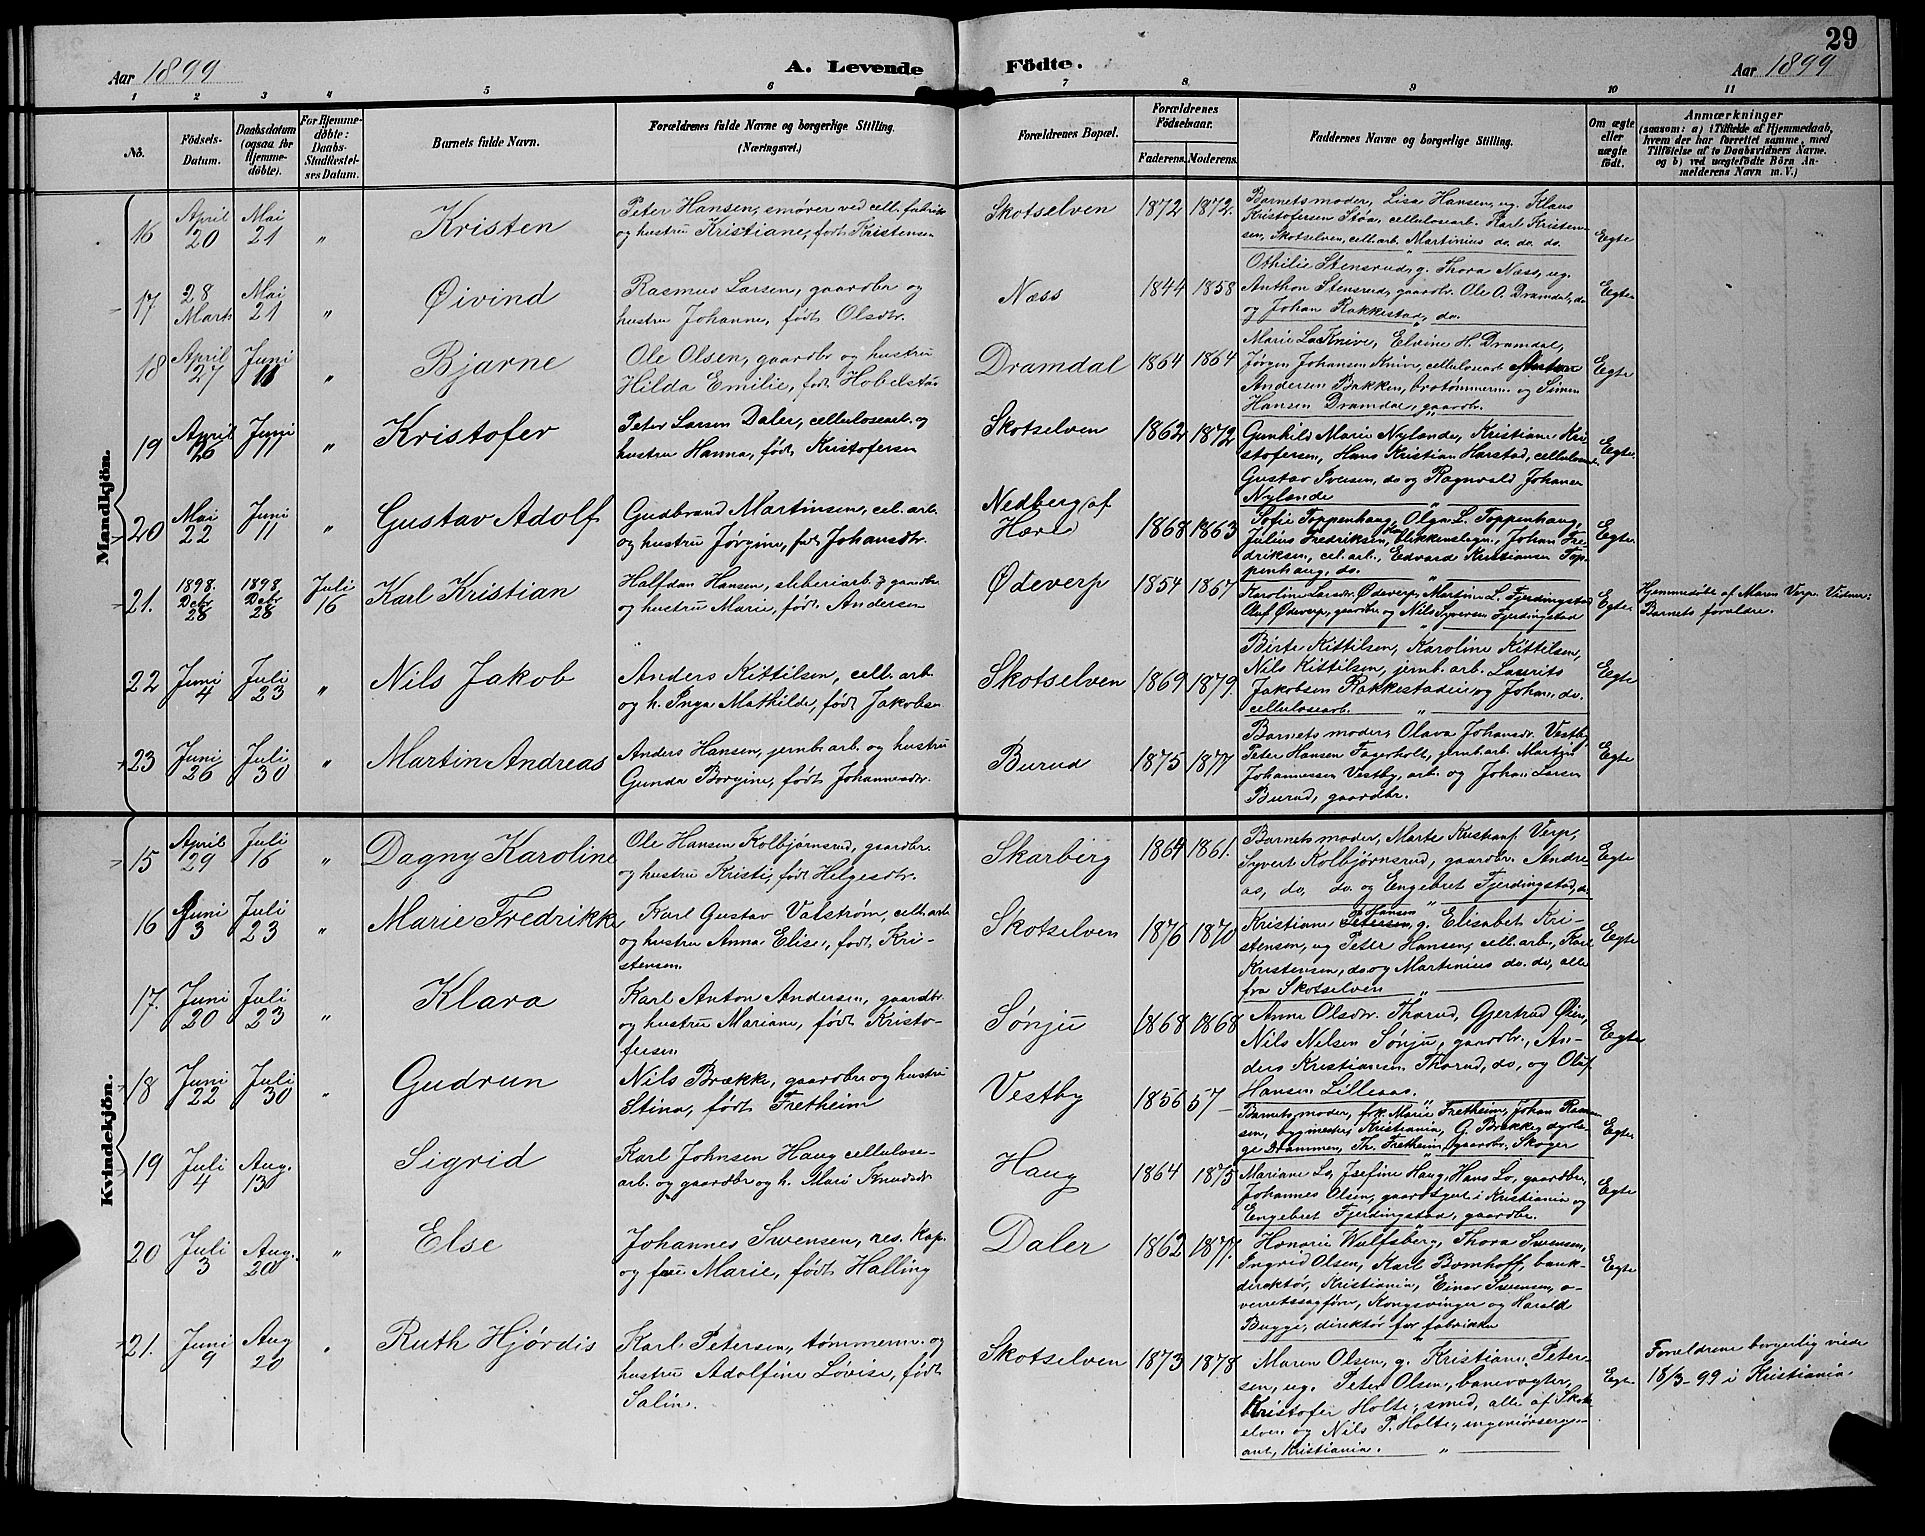 29
Aar 1899 A. Levende Födte. Aar 1899
1 2 3 4 5 6 7 8 9 10 11
No.
Födsels-
Datum.
Daabsdatum
(ogsaa for
Hjemme-
döbte).
For Hjemme-
döbte:
Daabs-
Stadfæstel-
ses Datum.
Barnets fulde Navn.
Forældrenes fulde Navne og borgerlige Stilling.
(Næringsvei.)
Forældrenes Bopæl.
Forældrenes
Födselsaar.
Faderens. Moderens.
Faddernes Navne og borgerlige Stilling.
Om ægte
eller
uægte
födt.
Anmærkninger
(saasom: a) i Tilfælde af Hjemmedaab,
hvem der har forrettet samme, med
Tilföielse af to Daabsvidners Navne.
og b) ved uægtefödte Börn An-
melderens Navn m. V.)
Mandkjön.
16 April 20 Mai 21 " Kristen
Peter Hansen, smører ved cell. fabrik
og hustru Kristiane, født Kristensen
Skotselven 1872 1872.
Barnets moder, Lisa Hansen, ug. Klaus
Kristofersen Støa, cellulosearb. Karl Kristen-
sen, Skotselven, cell. arb. Martinius do. do. do.
Egte
17 28 Marts Mai 21 " Øivind
Rasmus Larsen, gaardbr og
hustru Johanne, født Olsdtr.
Næss 1844 1858
Othilie Stensrud, g. Thora Næss, ug.
Anthon Stensrud, gaardbr. Ole O. Dramdal, do
og Johan Rakkestad, do.
Egte
18 April 27 Juni 11 " Bjarne
Ole Olsen, gaardbr og hustru
Hilda Emilie, født Hobelstad
Dramdal 1864 1864
Marie L. Knive, Elvine H. Dramdal,
Jørgen Johansen Knive, cellulosearb. Anton
Andersen Bakken, brotømmerm. og Simen
Hansen Dramdal, gaardbr.
Egte
19 April 26 Juni 11 " Kristofer
Peter Larsen Daler, cellulosearb. og
hustru Hanna, født Kristofersen
Skotselven 1862 1872
Gunhild Marie Nylande, Kristiane Kri-
stofersen, Hans Kristian Harstad, cellulosearb
Gustav Iversen, do og Ragnvald Johansen
Nylande
Egte
20 Mai 22 Juni 11 " Gustav Adolf
Gudbrand Martinsen, cel. arb.
og hustru Jørgine, født Johansdtr.
Nedberg af
Hære 1868 1863
Sofie Toppenhaug, Olga L. Toppenhaug,
Julius Fredriksen, blikkenslagn. Johan Fre-
driksen, cel. arb., Edvard Kristiansen Top-
penhaug, do.
Egte
21. 1898. Debr 28 1898 Debr 28 Juli 16 Karl Kristian
Halfdan Hansen, sliberiarb. og gaardbr
og hustru Marie, født Andersen
Ødeverp 1854 1867
Karoline Larsdtr. Ødeverp, Martine L. Fjerdingstad
Oluf Ødeverp, gaardbr og Nils Syversen Fjerdingstad
Egte
Hjemmedøbt af Maren Verp. Vidner:
Barnets forældre.
22 Juni 4 Juli 23 " Nils Jakob
Anders Kittilsen, cell. arb.
og h. Inga Mathilde, født Jakobsen
Skotselven 1869 1879.
Birte Kittilsen, Karoline Kittilsen,
Nils Kittilsen, jernb. arb. Laurits
Jakobsen Rakkestadeie og Johan do.
cellulosearb.
Egte
23 Juni 26 Juli 30 " Martin Andreas
Anders Hansen, jernb. arb. og hustru
Gunda Borgine, født Johannesdtr.
Burud 1875 1877
Barnets moder, Olava Johansdr. Vestby,
Peter Hansen Fagerholt, jernb. arb. Martin
Johannessen Vestby, arb. og Johan Larsen
Burud, gaardbr.
Egte
Kvindekjön.
15 April 29 Juli 16 " Dagny Karoline
Ole Hansen Kolbjørnsrud, gaardbr.
og hustru Kristi, født Helgesdtr.
Skarberg 1864 1861.
Barnets moder, Marte Kristians. Verp,
Syvert Kolbjørnsrud, gaardbr. Andre-
as, do, do. og Engebret Fjerdingstad, do
Egte
16 Juni 3 Juli 23 " Marie Fredrikke
Karl Gustav Valstrøm, cell. arb
og hustru Anna Elise, født Kri-
stensen.
Skotselven 1876 1870
Kristiane Petersen P Hansen g. Elisabet Kri-
stensen, ug Peter Hansen, cell. arb., Karl
Kristensen, do og Martinius do. do, alle
fra Skotselven
Egte
17. Juni 20 Juli 23 " Klara
Karl Anton Andersen, gaardbr.
og hustru Mariane, født Kristo-
fersen
Sønju 1868 1868
Anne Olsdtr. Thorud, Gjertrud Øien,
Nils Nilsen Sønju, gaardbr., An-
ders Kristiansen Thorud, do, og Oluf
Hansen Lilleaas.
Egte
18 Juni 22 Juli 30 " Gudrun
Nils Brække, gaardbr og hustru
Stina, født Fretheim
Vestby 1856 57
Barnets moder, frk. Marie Fretheim, Johan Rasmus-
sen, bygmester, Kristiania, G. Brække, dyrlæ-
ge Drammen, Th. Fretheim, gaardbr. Skoger
Egte
19 Juli 4 Aug. 13 Sigrid
Karl Johnsen Haug cellulose-
arb. og gaardbr og h. Mari Knudsdr.
Haug 1864 1875
Mariane Lo, Josefine Haug, Hans Lo, gaardbr,
Johannes Olsen, gaardsgut i Kristiania og
Engebret Fjerdingstad, gaardbr.
Egte
20 Juli 3 Aug. 20 " Else
Johannes Svensen, res. kap.
og frue Marie, født Halling
Daler 1862 1877.
Honorie Wulfsberg, Thora Svensen,
Ingrid Olsen, Karl Bomhoff, bank-
direktør, Kristiania, Einar Svensen, o-
verretssagfører, Kongsvinger og Harald
Bugge, direktør for fabrikke
Egte
21. Juni 9 Aug 20 " Ruth Hjørdis
Karl Petersen, tømmerm. og
hustru Adolfine Lovise, født
Salin.
Skotselven 1873 1878
Maren Olsen, g. Kristiane Peter-
sen, ug. Peter Olsen, banevogter,
Kristofer Holte, smed, alle af Skots-
elven og Nils P. Holte, ingeniørserge-
ant, Kristiania.
Egte
Forældrene borgerlig viede
18/3-99 i Kristiania.